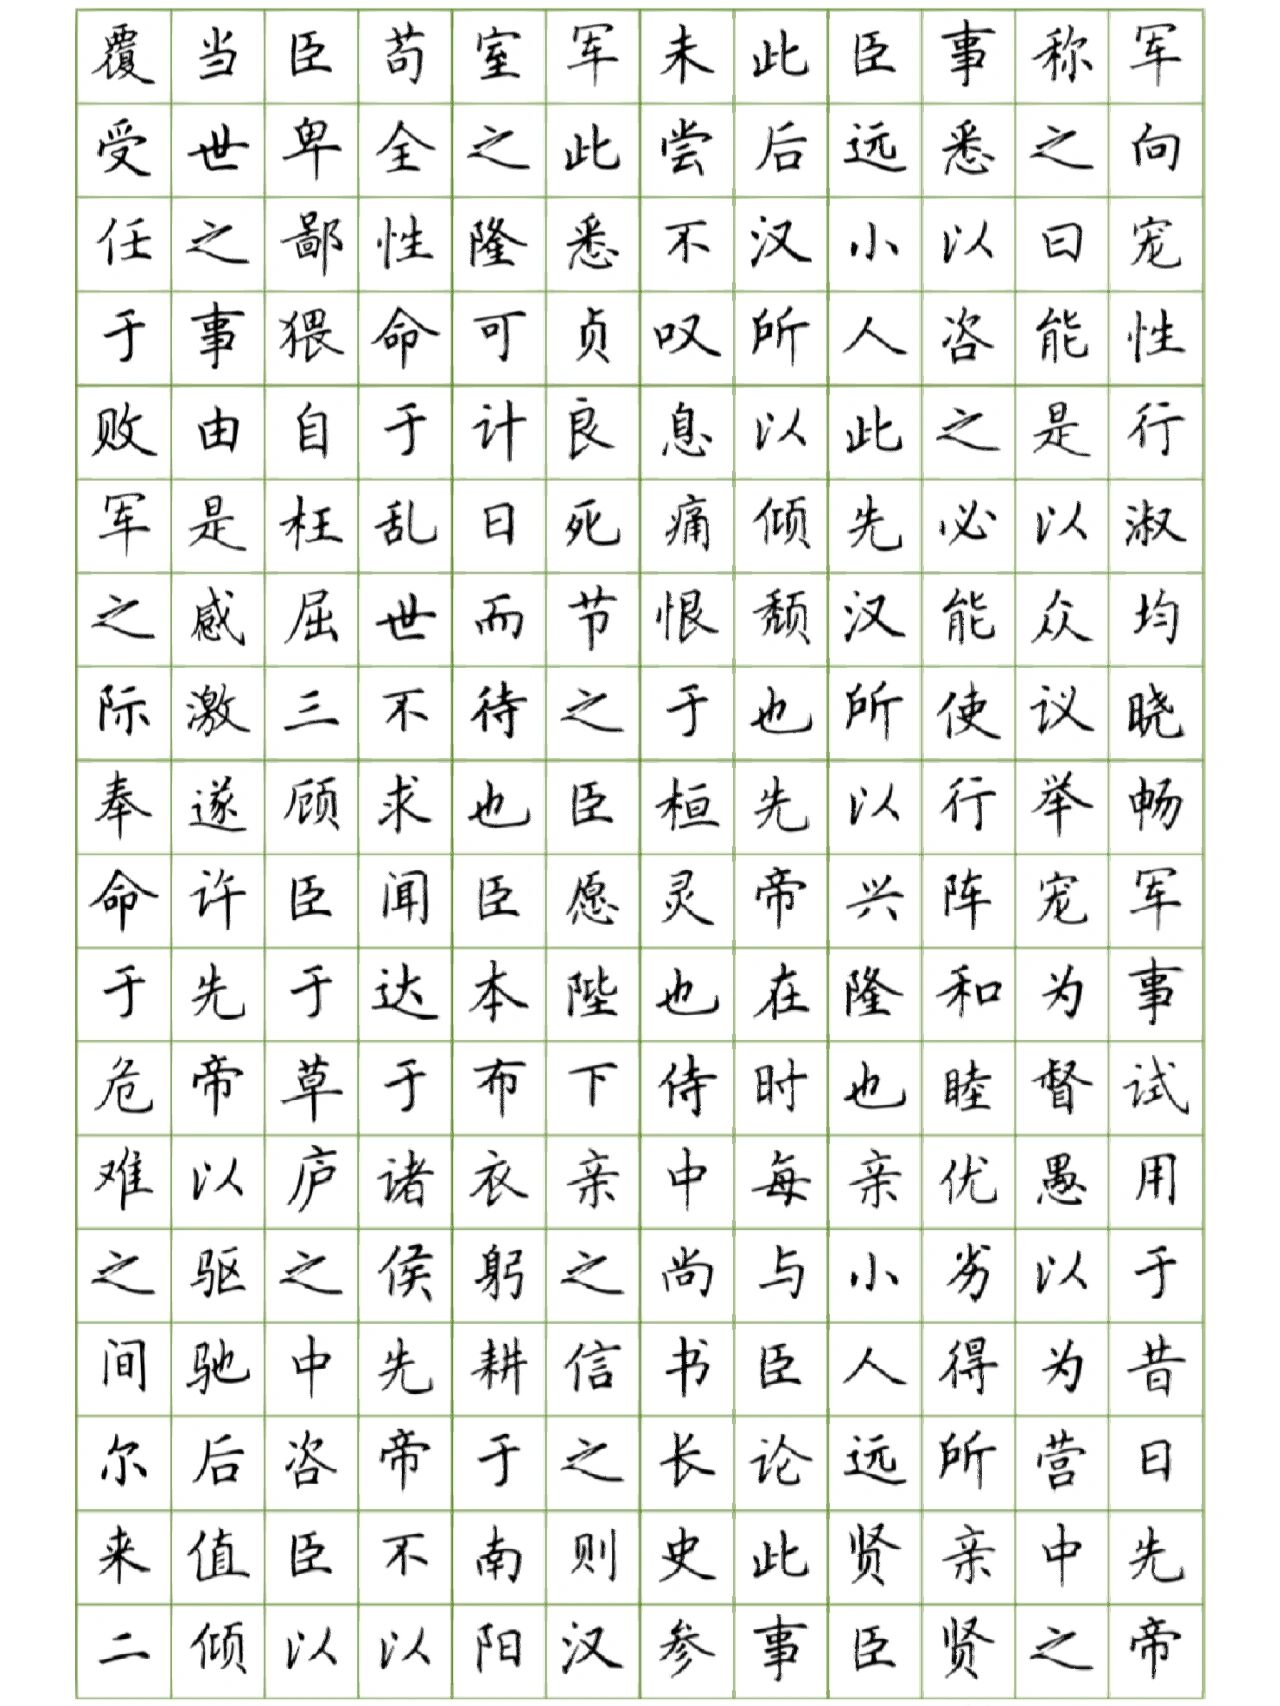 军向宠性行淑均晓畅军事试用于昔日先帝
称之曰能是以众议举宠为督愚以为营中之
事悉以咨之必能使行阵和睦优劣得所亲贤
臣远小人此先汉所以兴隆也亲小人远贤臣
此后汉所以倾颓也先帝在时每与臣论此事
未尝不叹息痛恨于桓灵也侍中尚书长史参
军此悉贞良死节之臣愿陛下亲之信之则汉
室之隆可计日而待也臣本布衣躬耕于南阳
苟全性命于乱世不求闻达于诸侯先帝不以
臣卑鄙猥自枉屈三顾臣于草庐之中咨臣以
当世之事由是感激遂许先帝以驱驰后值倾
覆受任于败军之际奉命于危难之间尔来二